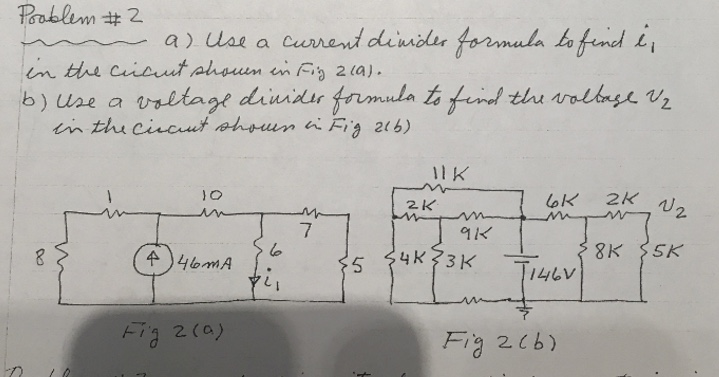 Problem # 2
a) Use a current divider formula to find i₁
in the circuit shown in Fig 2(a).
b) Use a voltage divider formula to find the voltage V₂
in the circuit shown in Fig 2(b)
11K
1 10 2K 6K 2K V₂
7 9K
8 46mA 6 5 4K 3K 146V 8K 5K
i₁
Fig 2(a)
Fig 2(b)